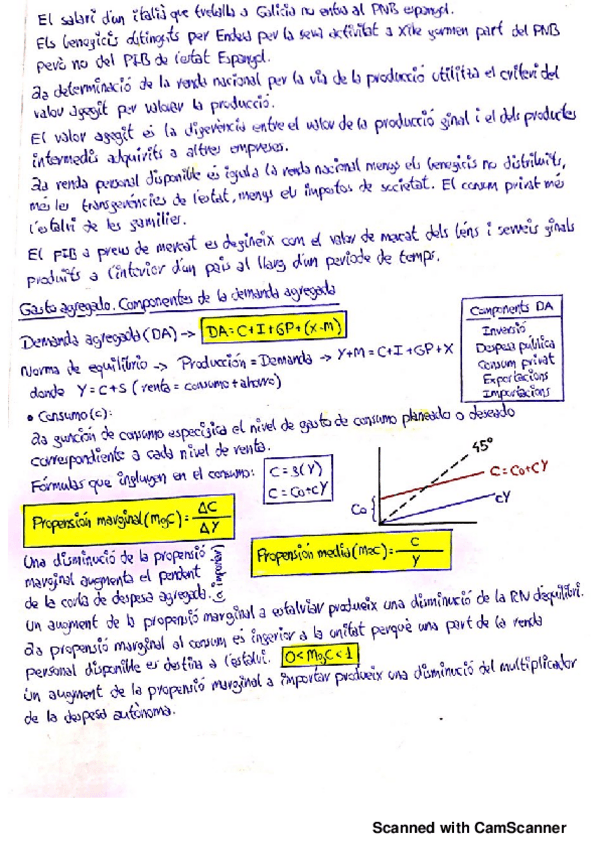 El salari d'un italià que treballa a Galícia no entra al PNB espanyol.
Els beneficis obtinguts per Endesa per la seva activitat a Xile formen part del PNB
però no del PIB de l'estat Espanyol.
La determinació de la renda nacional per la via de la producció utilitza el criteri del
valor afegit per valorar la producció.
El valor afegit és la diferència entre el valor de la producció final i el dels productes
intermedis adquirits a altres empreses.
La renda personal disponible és igual a la renda nacional menys els beneficis no distribuïts,
més les transferències de l'estat, menys els impostos de societat. El consum privat més
l'estalvi de les famílies.
El PIB a preus de mercat es defineix com el valor de mercat dels béns i serveis finals
produïts a l'interior d'un país al llarg d'un període de temps.
Gasto agregado. Componentes de la demanda agregada
Demanda agregada (DA) -> DA = C + I + GP + (x-m)
Norma de equilibrio -> Producción = Demanda -> Y+M = C+I+GP+X
donde Y = C+S (renta = consumo + ahorro)
Components DA
Inversió
Despesa pública
Consum privat
Exportacions
Importacions
• Consumo (c):
La función de consumo especifica el nivel de gasto de consumo planeado o deseado
correspondiente a cada nivel de renta.
Fórmulas que influyen en el consumo:
C = f(Y)
C = Co+cY
45°
C = Co+cY
cY
Co
Propensión marginal (MgC) = ΔC / ΔY
Propensión media (MeC) = C / Y
Una disminució de la propensió
marginal augmenta el pendent
de la corba de despesa agregada.
Un augment de la propensió marginal a estalviar produeix una disminució de la RN d'equilibri.
La propensió marginal al consum és inferior a la unitat perquè una part de la renda
personal disponible es destina a l'estalvi. 0 < MgC < 1
Un augment de la propensió marginal a importar produeix una disminució del multiplicador
de la despesa autònoma.
Scanned with CamScanner